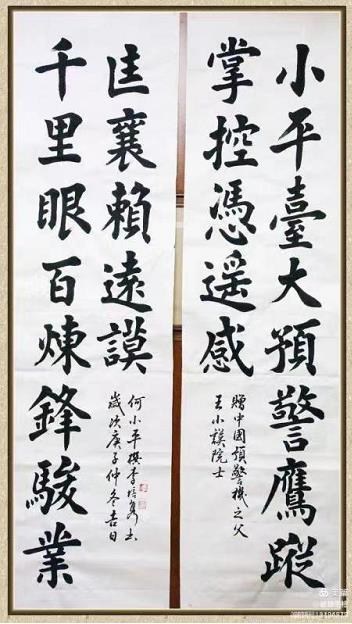 小平臺大預警鷹蹤
掌控憑遥感
贈中國預警機之父
王小謨院士
千里眼百煉鋒駿業
匡襄賴遠謨
何小平撰李培隽書
歲次庚子仲冬吉日